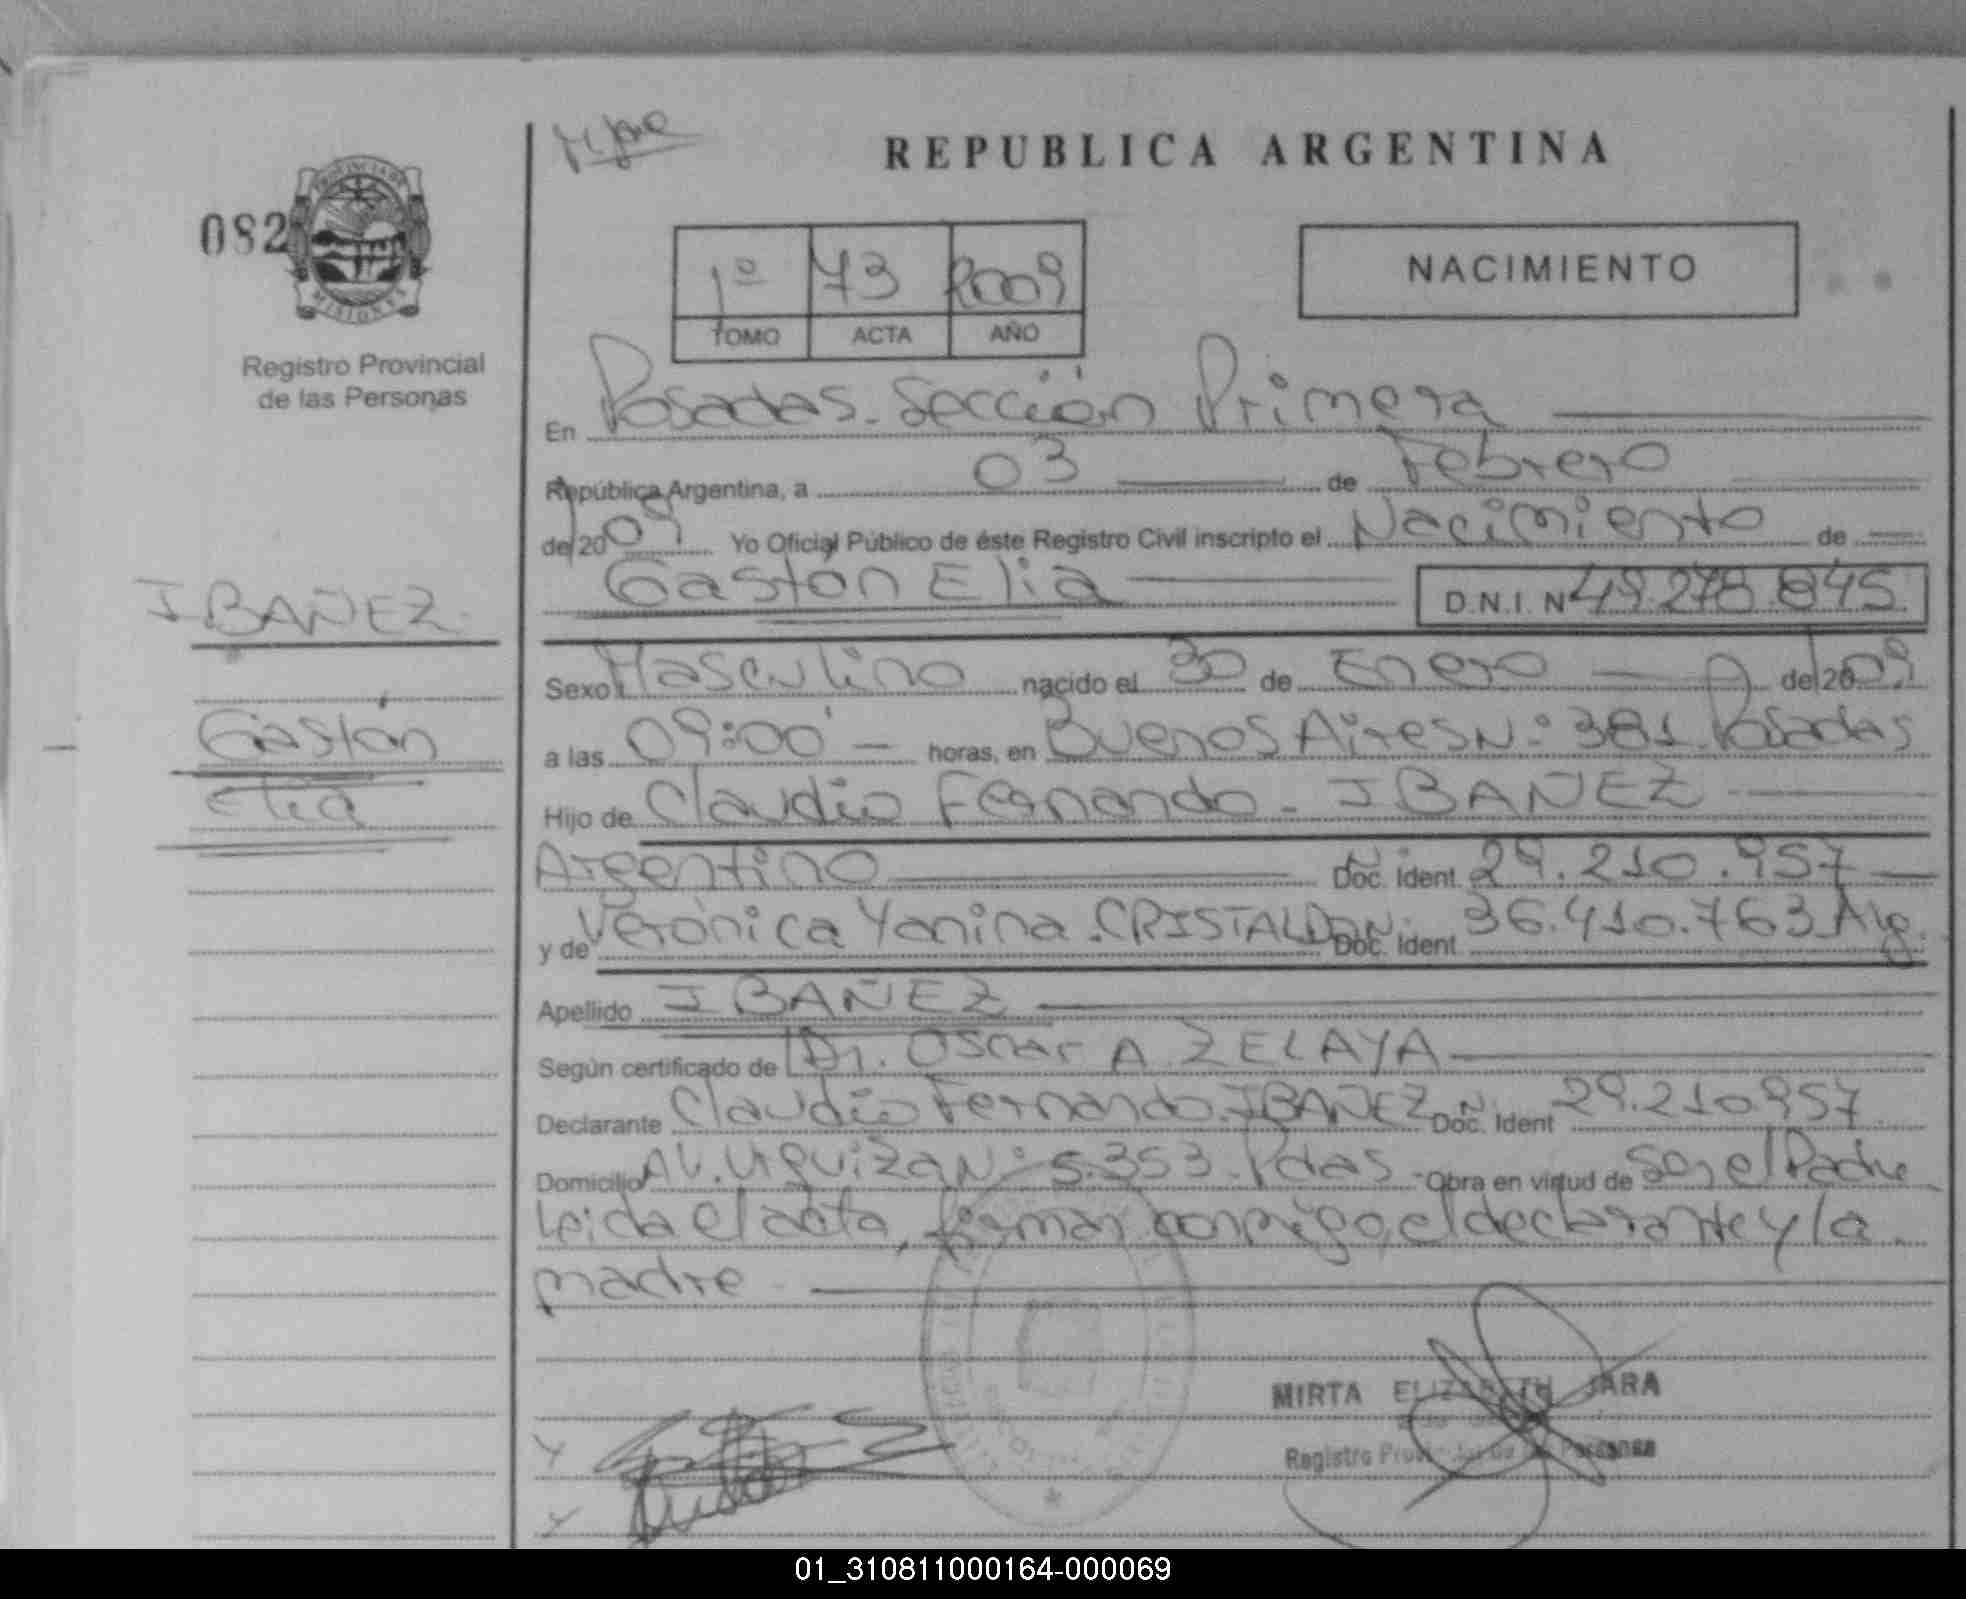 REPUBLICA ARGENTINA
082
PROVINCIA DE
MISIONES
Registro Provincial
de las Personas
1º 73 2009
TOMO ACTA AÑO
NACIMIENTO
En Posadas. Sección Primera
República Argentina, a 03 de Febrero
de 2009 Yo Oficial Público de éste Registro Civil inscripto el Nacimiento de
Gastón Elia D.N.I. N 49.278.845
IBAÑEZ.
Gastón
Elia
Sexo Masculino nacido el 30 de Enero de 2009
a las 09:00' horas, en Buenos Aires Nº 381. Posadas
Hijo de Claudio Fernando - IBAÑEZ
Argentino Doc. Ident. 29.210.957
y de Verónica Yanina. CRISTALDO N. Doc. Ident. 36.410.763 Arg.
Apellido IBAÑEZ
Según certificado de Dr. Oscar A. ZELAYA
Declarante Claudio Fernando. IBAÑEZ N. Doc. Ident 29.210.957
Domicilio Av. Urquiza Nº 5.353. Pdas. Obra en virtud de Ser el Padre
Leida el acta, firman conmigo, el declarante y la
madre
MIRTA ELIZABETH JARA
Registro Provincial de las Personas
01_310811000164-000069